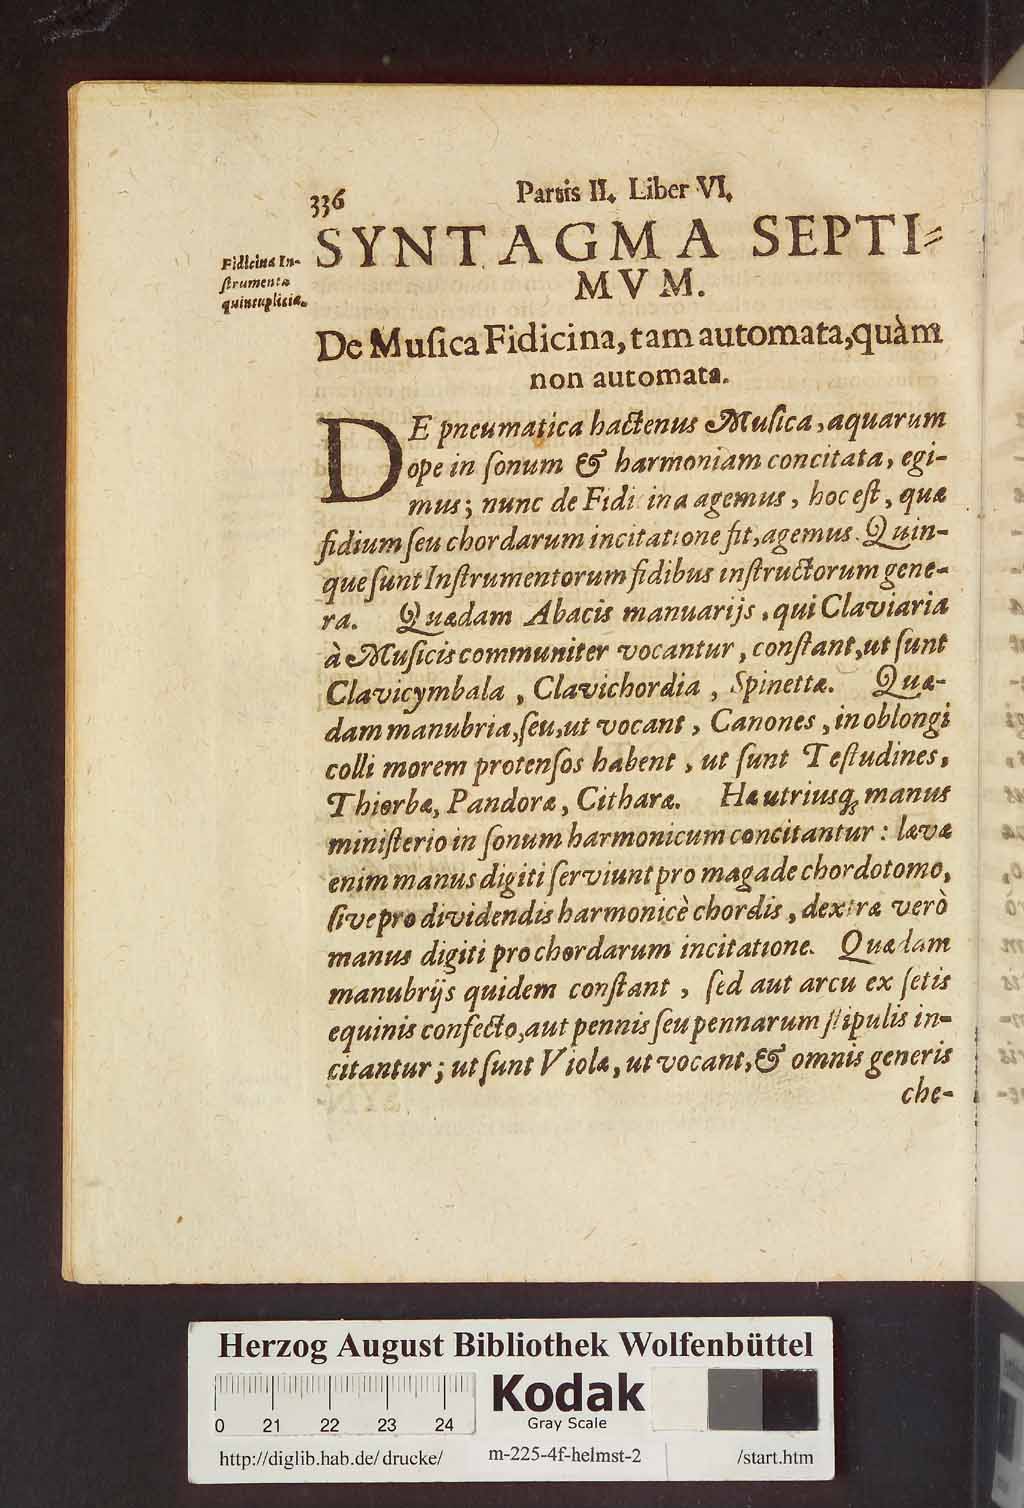 336
Partis II. Liber VI.
Fidicina In-
ſtrumenta
quintuplicia.
SYNTAGMA SEPTI-
MVM.
De Muſica Fidicina, tam automata, quàm
non automata.
DE pneumatica hactenus Muſica, aquarum
ope in ſonum & harmoniam concitata, egi-
mus; nunc de Fidi ina agemus, hoc eſt, quæ
fidium ſeu chordarum incitatione fit, agemus. Quin-
que ſunt Inſtrumentorum fidibus inſtructorum gene-
ra. Quædam Abacis manuarijs, qui Claviaria
à Muſicis communiter vocantur, conſtant, ut ſunt
Clavicymbala, Clavichordia, Spinettæ. Quæ-
dam manubria, ſeu, ut vocant, Canones, in oblongi
colli morem protenſos habent, ut ſunt Teſtudines,
Thiorbæ, Pandoræ, Citharæ. Hæ utriusq; manus
miniſterio in ſonum harmonicum concitantur: lævæ
enim manus digiti ſerviunt pro magade chordotomo,
ſive pro dividendis harmonicè chordis, dextræ verò
manus digiti pro chordarum incitatione. Quædam
manubrijs quidem conſtant, ſed aut arcu ex ſetis
equinis confecto, aut pennis ſeu pennarum ſtipulis in-
citantur; ut ſunt Violæ, ut vocant, & omnis generis
che-
Herzog August Bibliothek Wolfenbüttel
0 21 22 23 24
Kodak
Gray Scale
http://diglib.hab.de/drucke/ m-225-4f-helmst-2 /start.htm